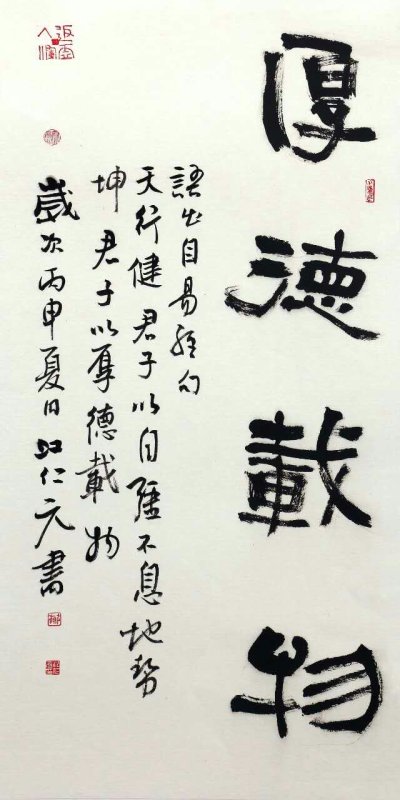 厚德載物
語出自易經句
天行健 君子以自彊不息 地勢
坤 君子以厚德載物
歲次丙申夏日 仁元書